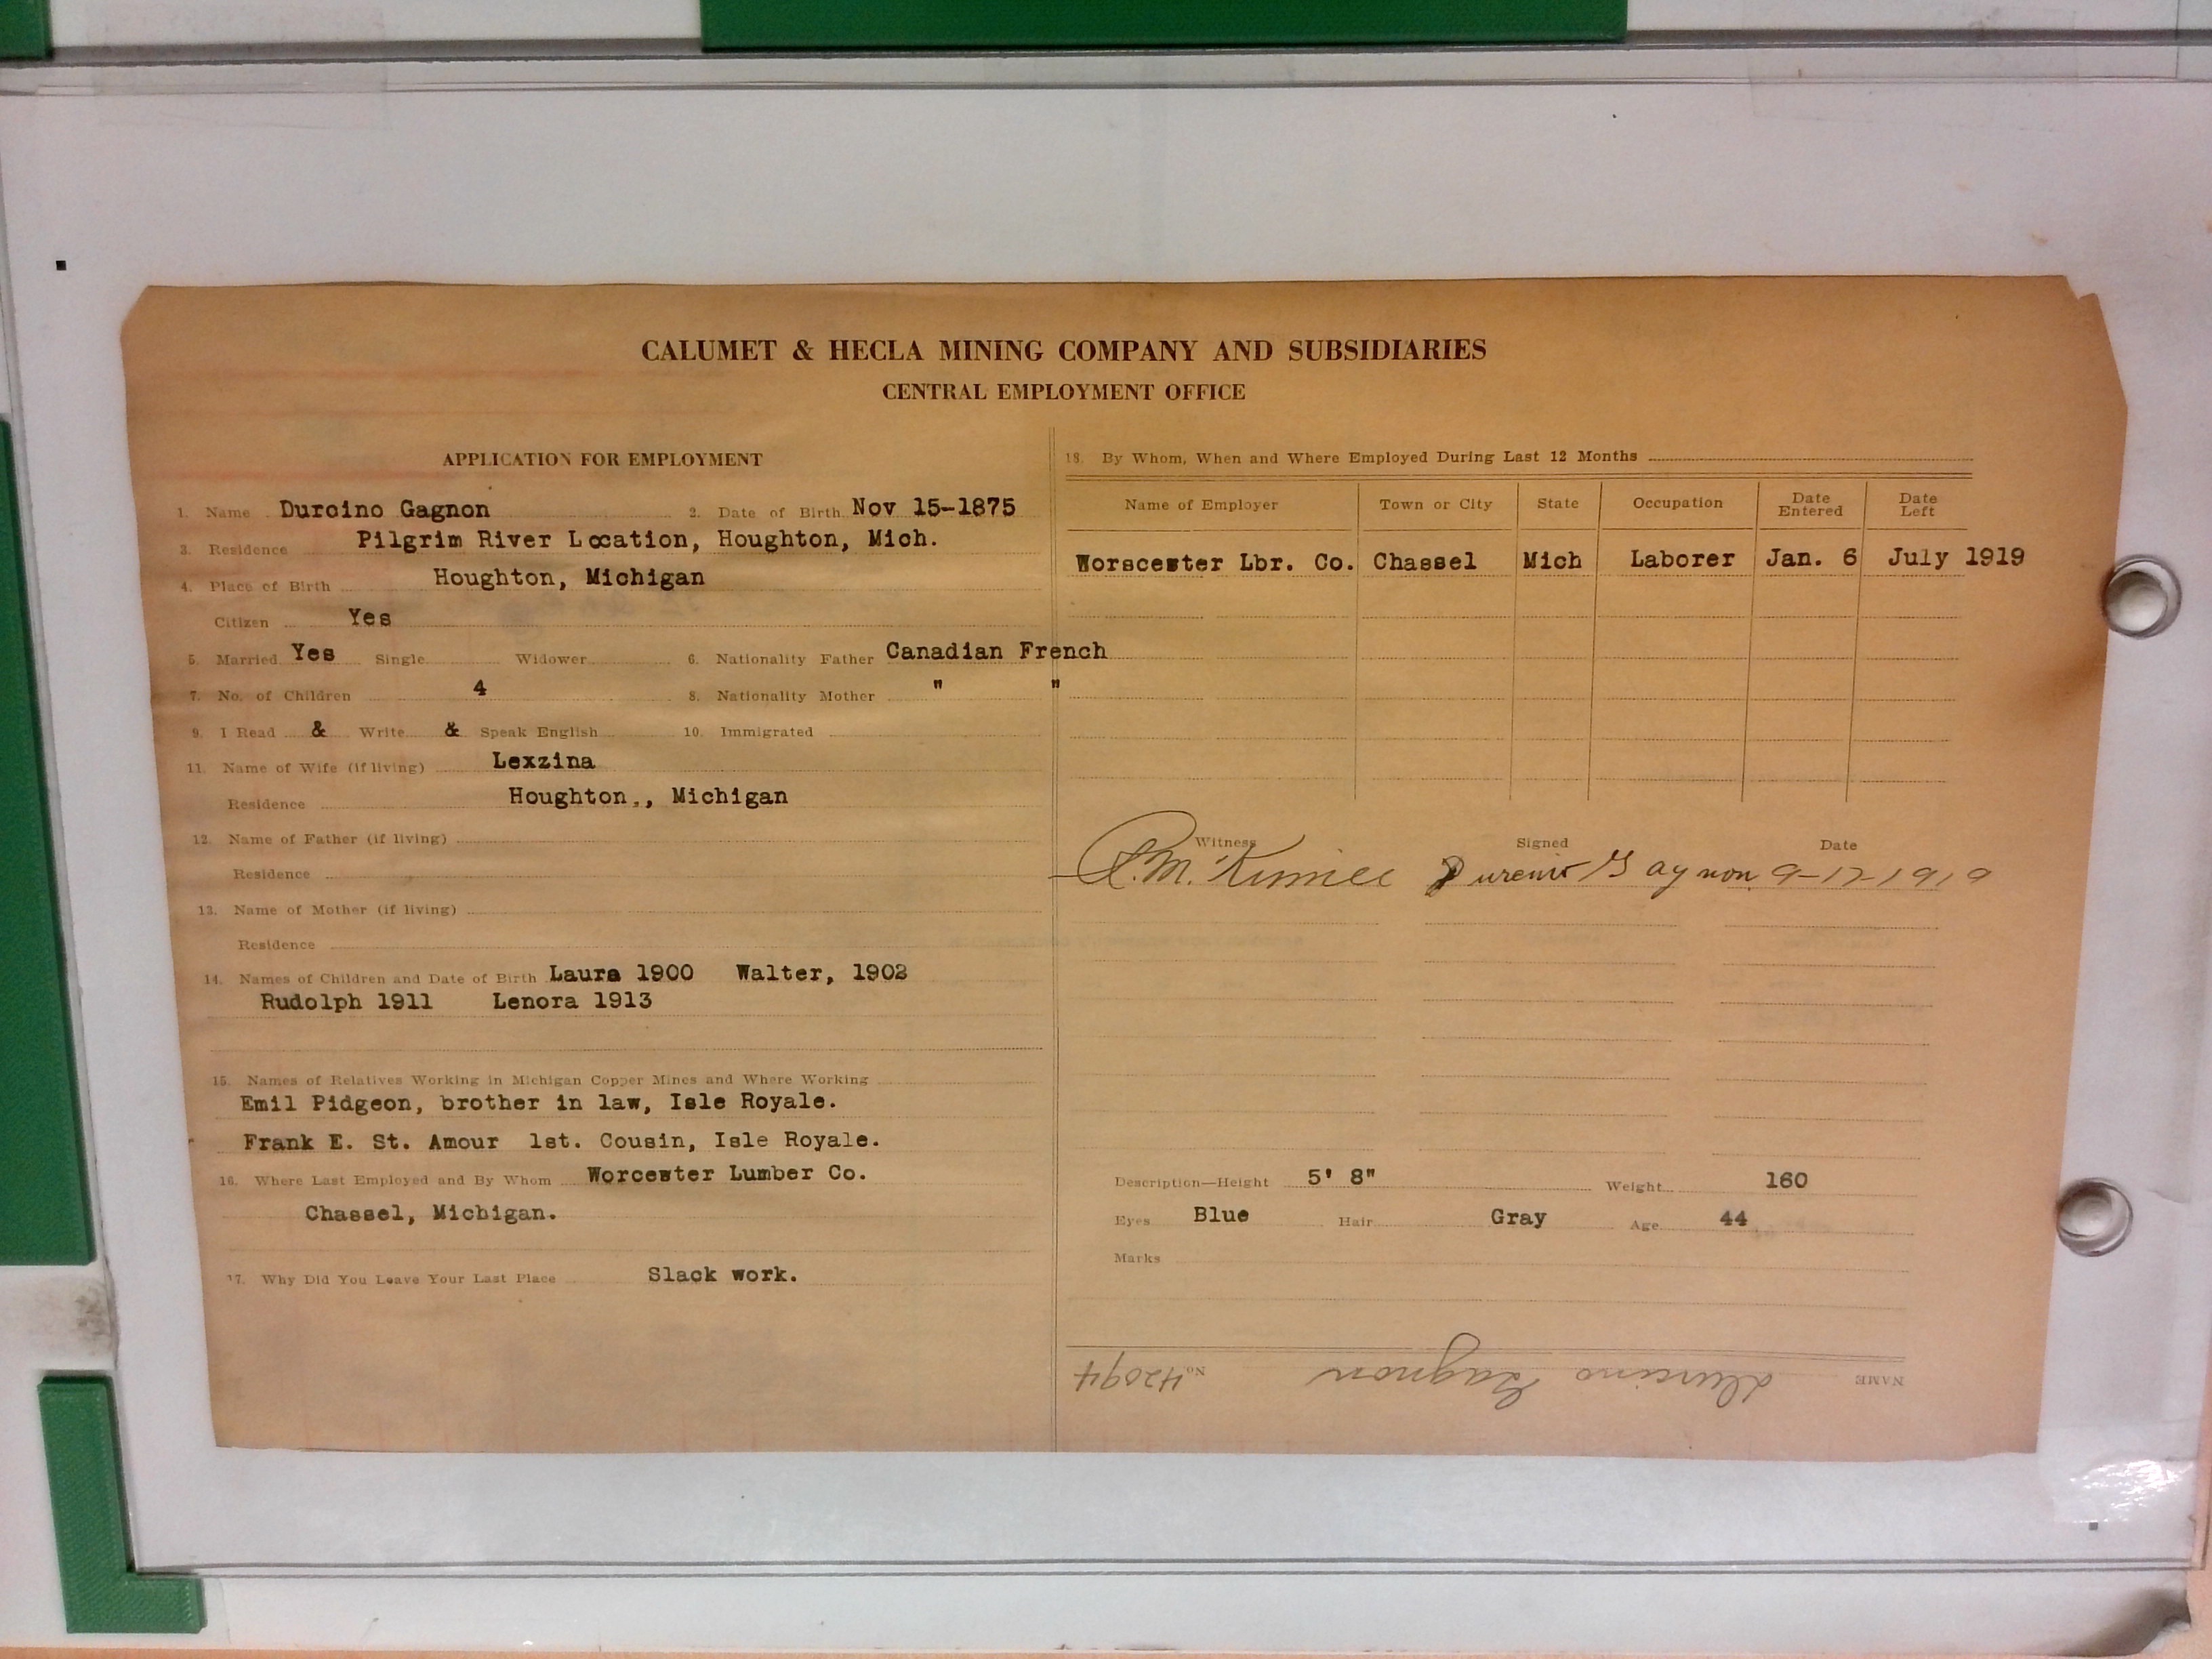 CALUMET & HECLA MINING COMPANY AND SUBSIDIARIES
CENTRAL EMPLOYMENT OFFICE
APPLICATION FOR EMPLOYMENT
1. Name Durcino Gagnon 2. Date of Birth Nov 15-1875
3. Residence Pilgrim River Location, Houghton, Mich.
4. Place of Birth Houghton, Michigan
Citizen Yes
5. Married Yes Single Widower 6. Nationality Father Canadian French
7. No. of Children 4 8. Nationality Mother " "
9. I Read & Write & Speak English 10. Immigrated
11. Name of Wife (if living) Lexzina
Residence Houghton., Michigan
12. Name of Father (if living)
Residence
13. Name of Mother (if living)
Residence
14. Names of Children and Date of Birth Laura 1900 Walter, 1902
Rudolph 1911 Lenora 1913
15. Names of Relatives Working in Michigan Copper Mines and Where Working
Emil Pidgeon, brother in law, Isle Royale.
Frank E. St. Amour 1st. Cousin, Isle Royale.
16. Where Last Employed and By Whom Worcester Lumber Co.
Chassel, Michigan.
17. Why Did You Leave Your Last Place Slack work.
18. By Whom, When and Where Employed During Last 12 Months
Name of Employer Town or City State Occupation Date Entered Date Left
Worscester Lbr. Co. Chassel Mich Laborer Jan. 6 July 1919
Witness Signed Date
Gagnon 9-17-1919
Description—Height 5' 8" Weight 160
Eyes Blue Hair Gray Age 44
Marks
NAME Durcino Gagnon No. 42094